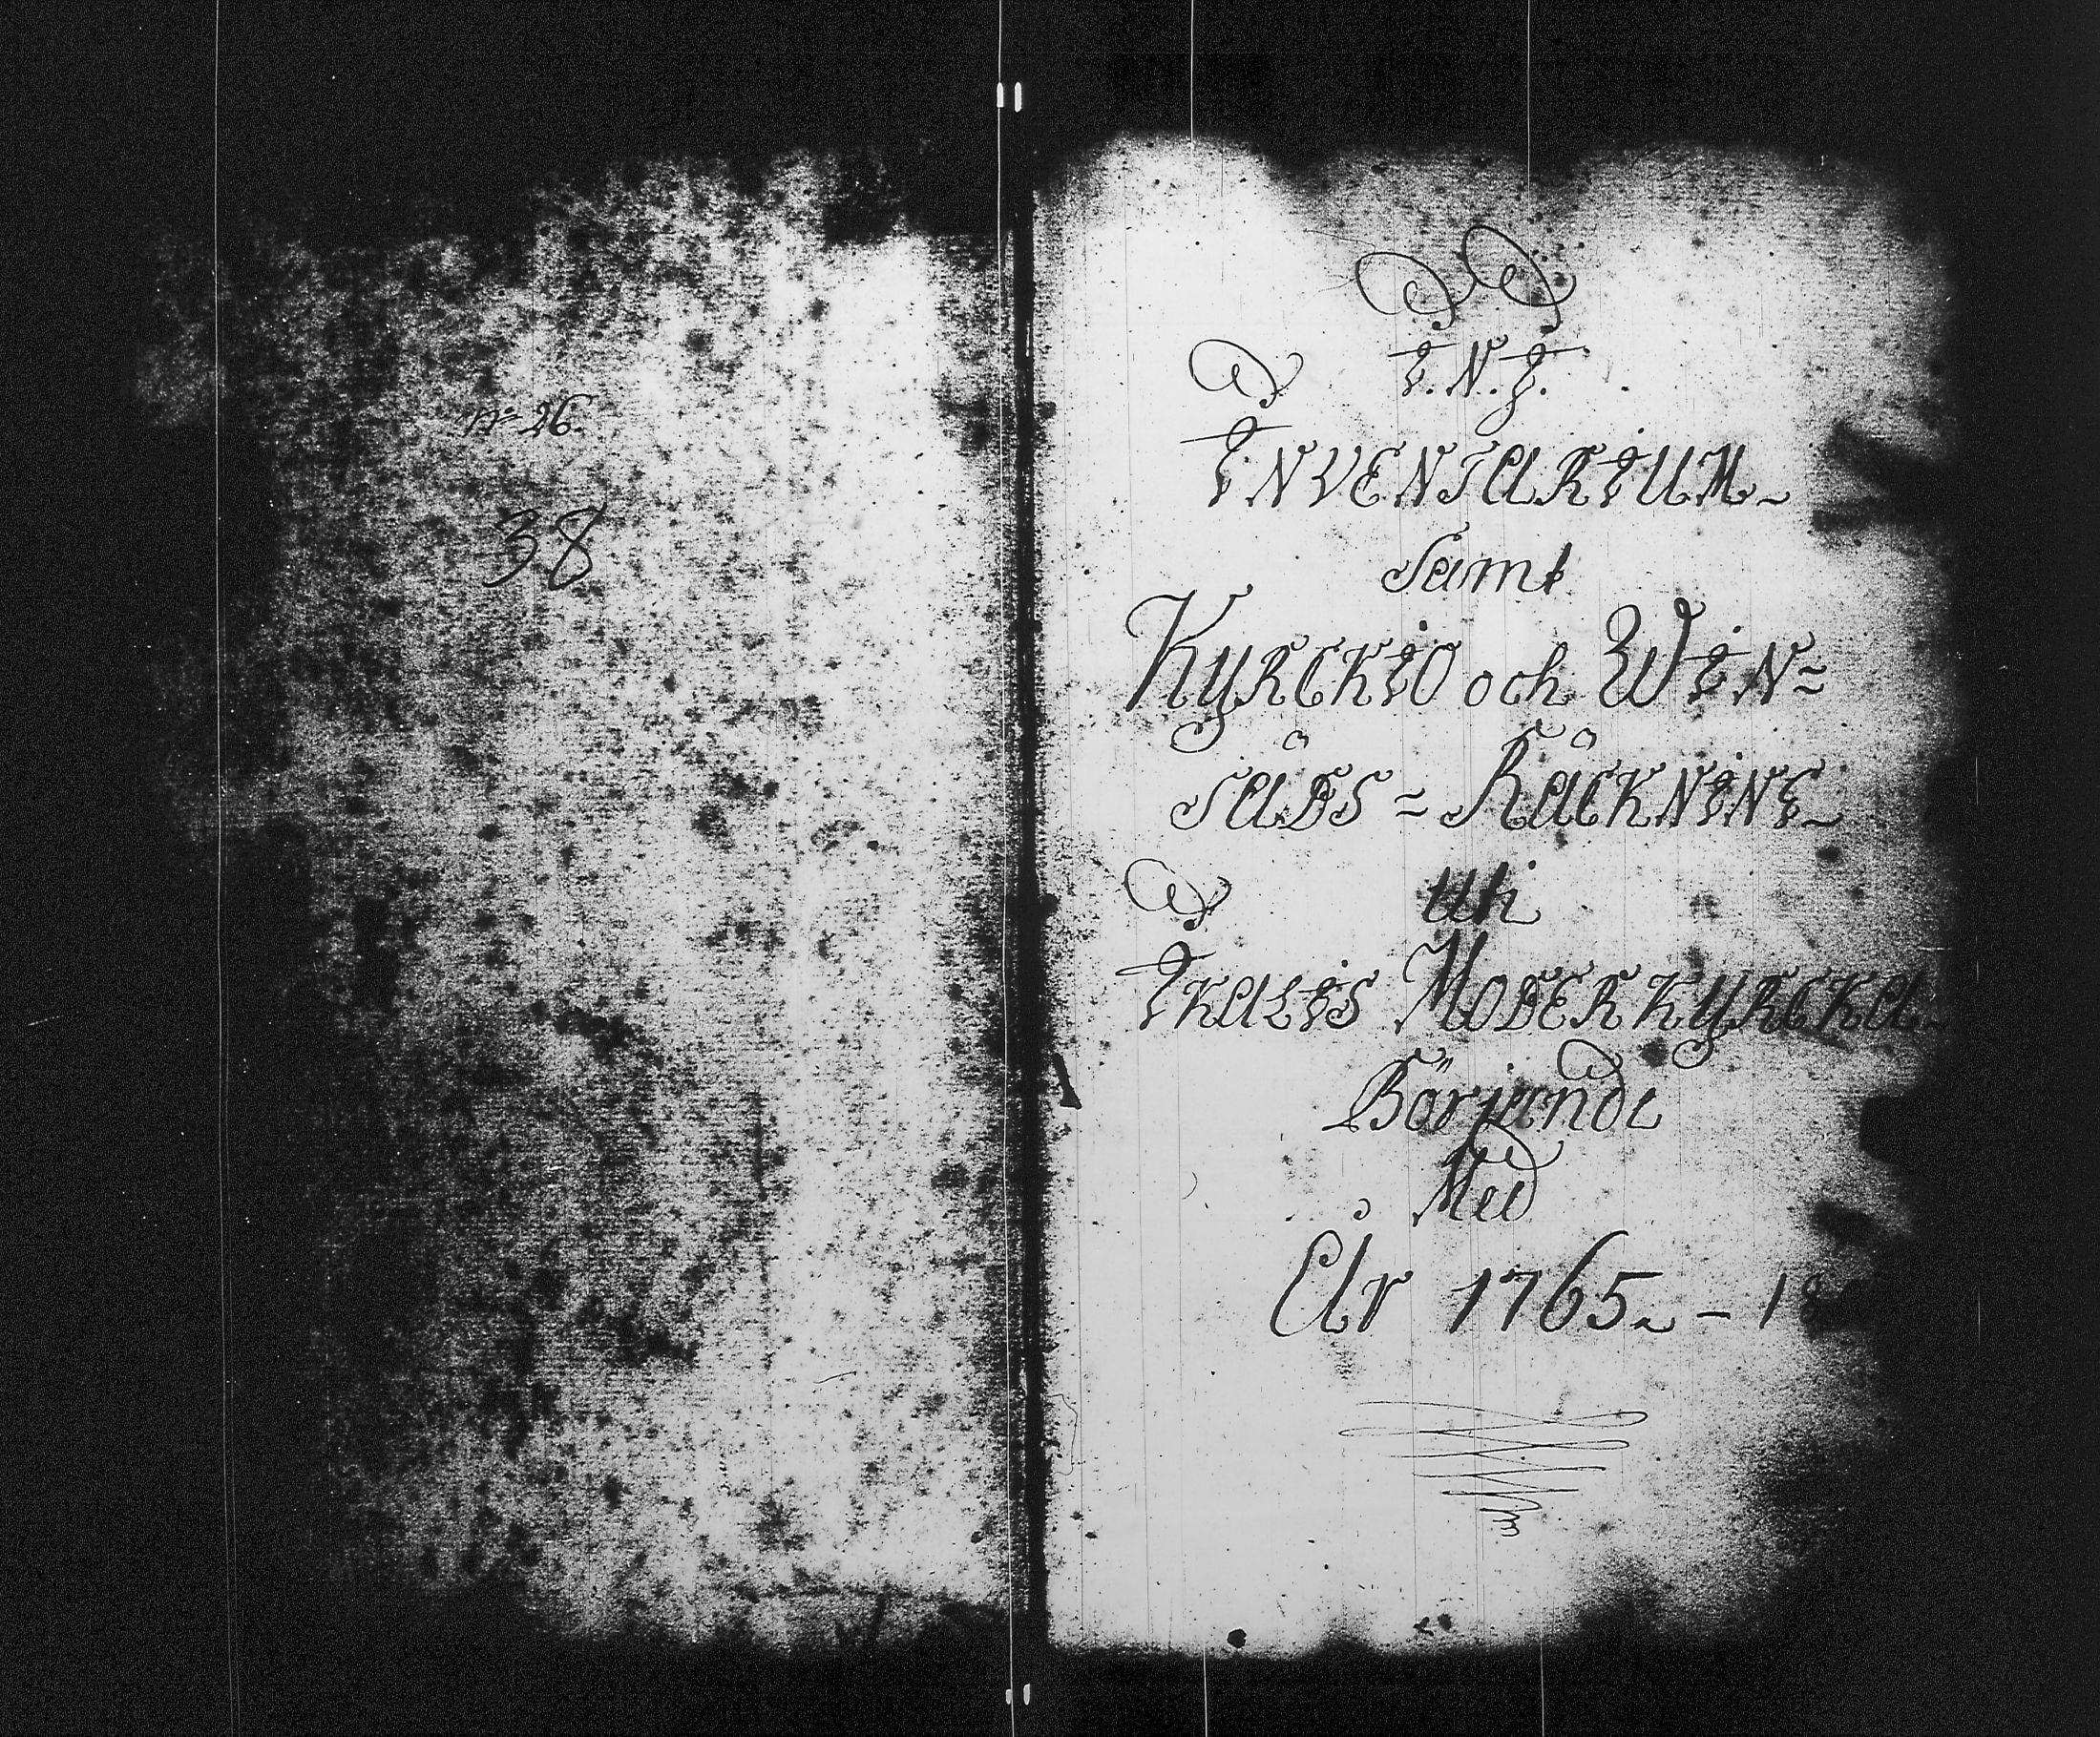 no 26.
38
I.N.J.
INVENTARIUM
Samt
KYRCKIO och WIN=
SÄDS = RÄCKNING
Uti
IKALIS MODERKYRCKA
Börjande
Med
År 1765 - 18